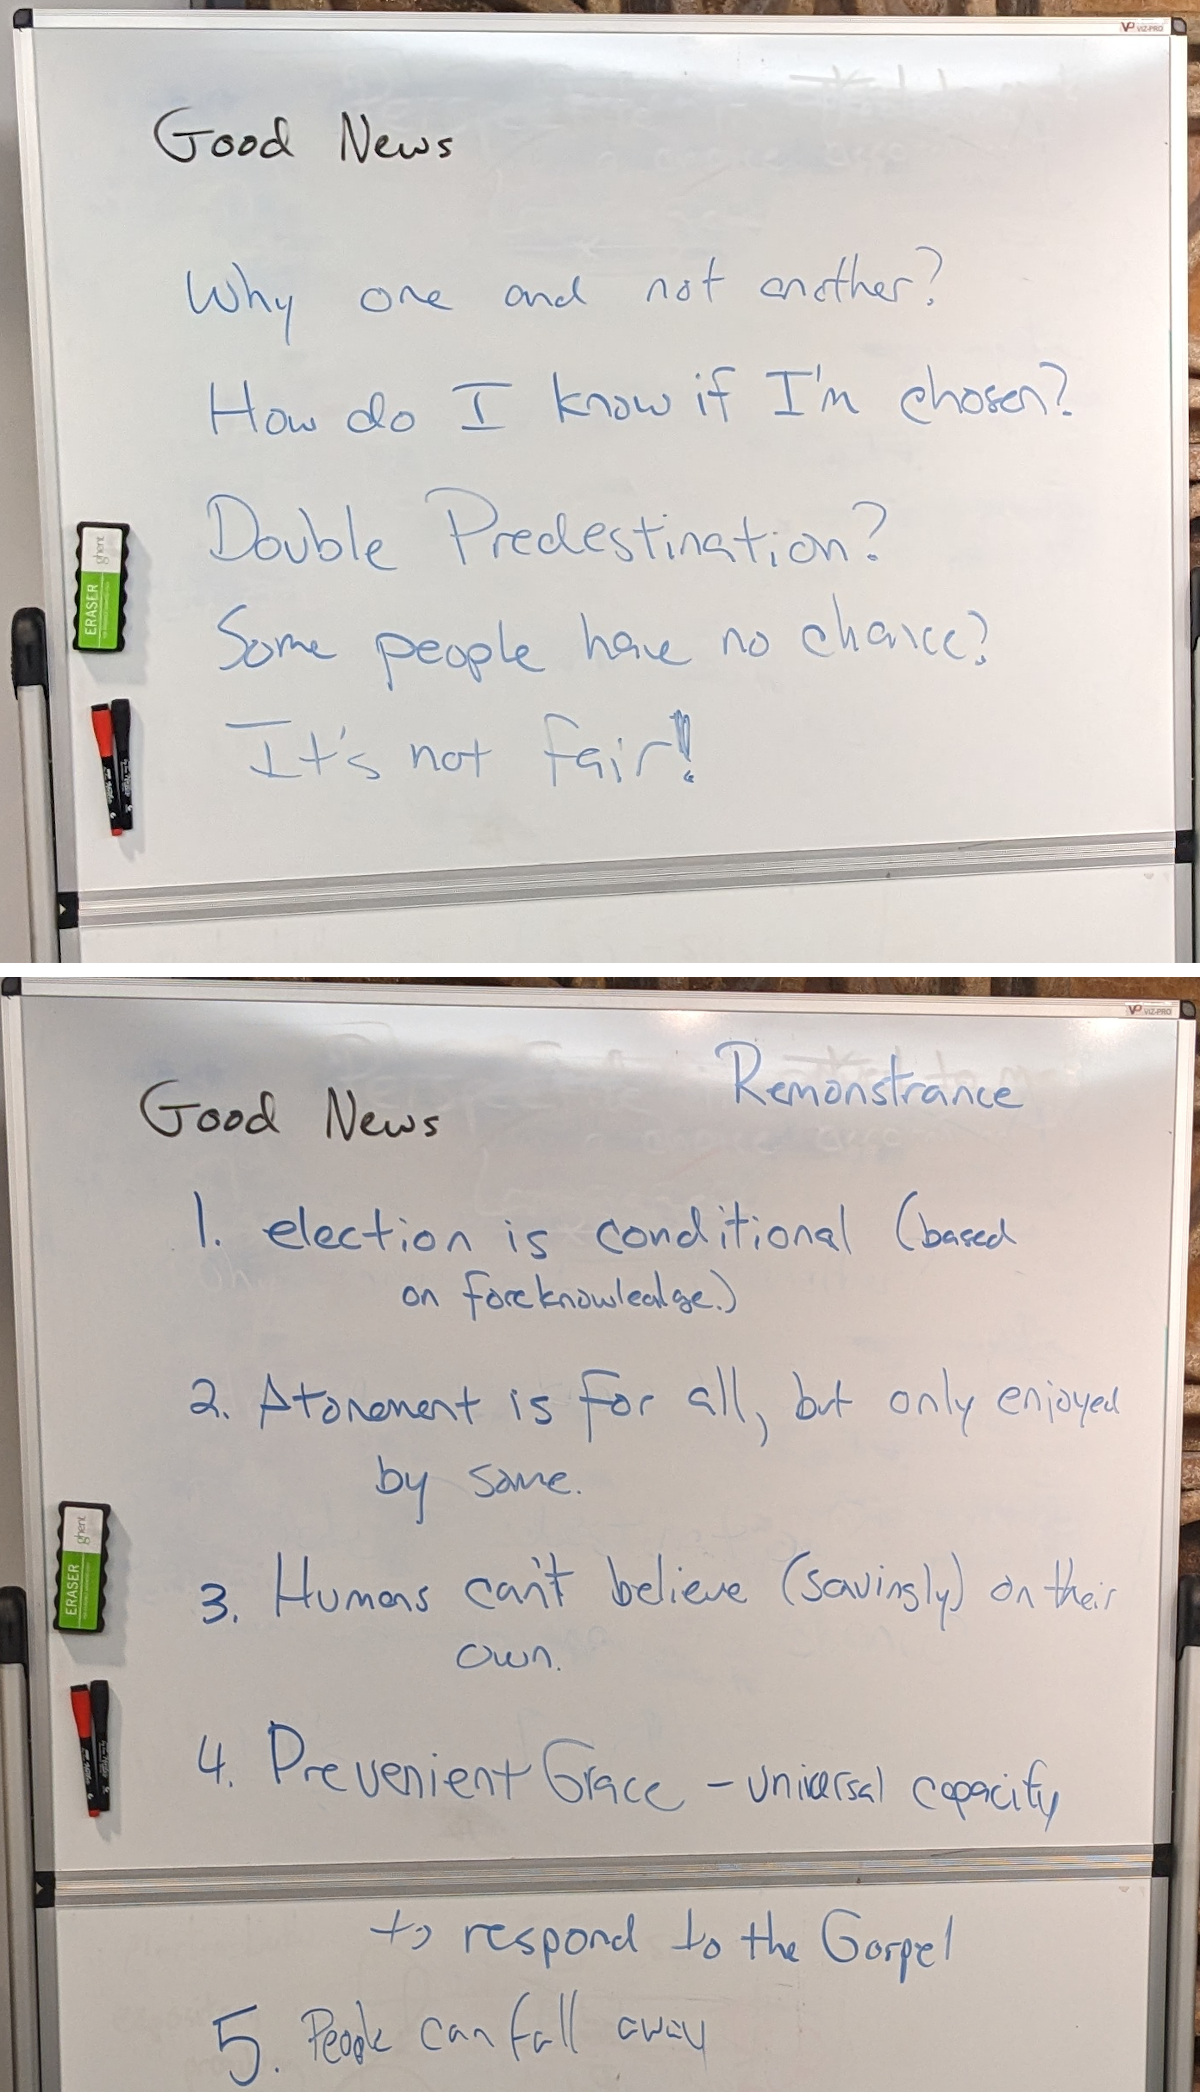 VP VIZ-PRO
Good News
Why one and not another?
How do I know if I'm chosen?
Double Predestination?
Some people have no chance?
It's not fair!
ghent
ERASER
VP VIZ-PRO
Remonstrance
Good News
1. election is conditional (based
on foreknowledge.)
2. Atonement is for all, but only enjoyed
by some.
3. Humans can't believe (savingly) on their
own.
4. Prevenient Grace - universal capacity
to respond to the Gospel
5. People can fall away
ghent
ERASER